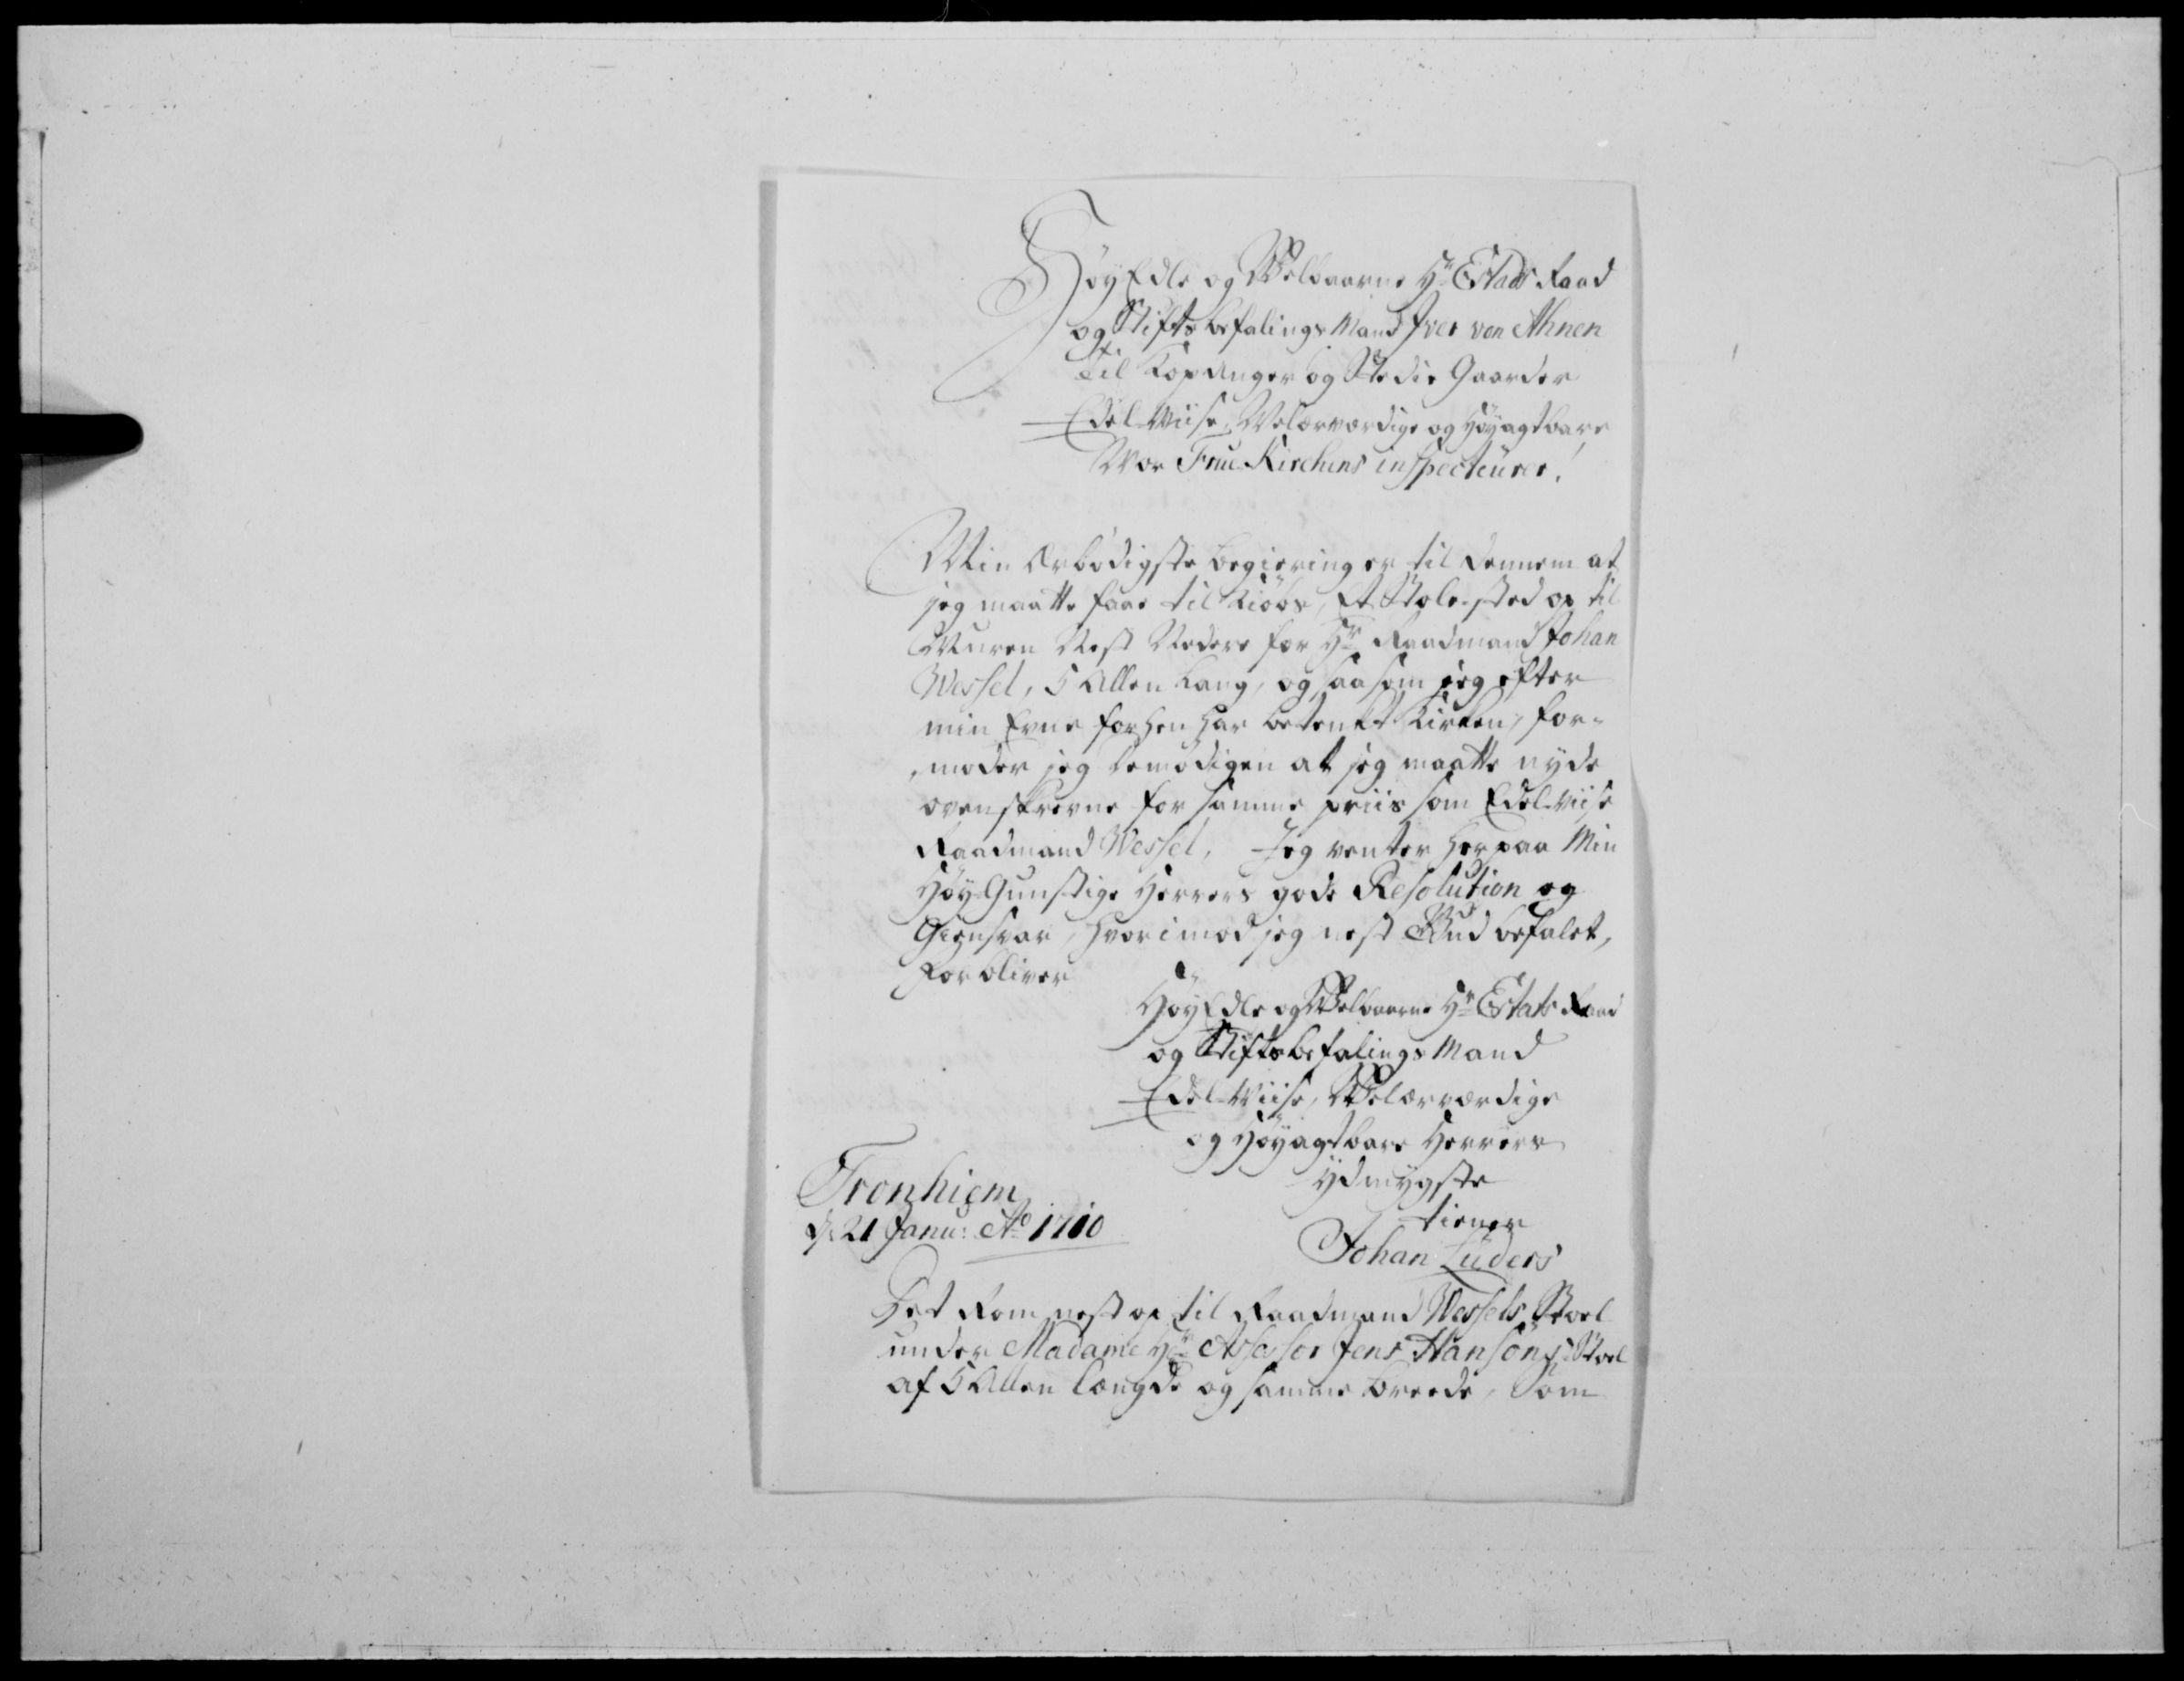 HöyEdle og Welbaarne Hr Estats Raad
og Stiftsbefalings Mand Iver von Ahnen
til Kopanger og Stedie Gaarder
Edel Wiise, Welærværdige og Høyagtbare
Wor Frue Kirchens inspecteurer.
Min Ærbødigste begiering er til dennem at
jeg maatte faae til Kiöbs, Et Stole-sted op til
Muren Nest Neders for Hr Raadmand Johan
Wessel, 5 Allen Lang, og saasom jeg efter
min Evne forhen har betenkt Kirken, for-
moder jeg demodigen at jeg maatte nyde
ovenskrevne for samme priis som Edel-Wiise
Raadmand Wessel, Jeg venter herpaa Min
HöyGunstige Herrers gode Resolution og
Giensvar, hvorimod jeg nest Gud befalet,
forbliver
HöyEdle og Welbaarne Hr Estats Raad
og Stiftsbefalings Mand
Edel-Wiise, Welærværdige
og Höyagtbare Herrers
Ydmygste
tiener
Johan Lüders
Tronhiem
d: 21 Janu: Ao 1710
Det Rom nest op til Raadmand Wessels Stoel
under Madame Hr Assessor Jens Hansöns Stoel
af 5 Allen længde og samme breede, som